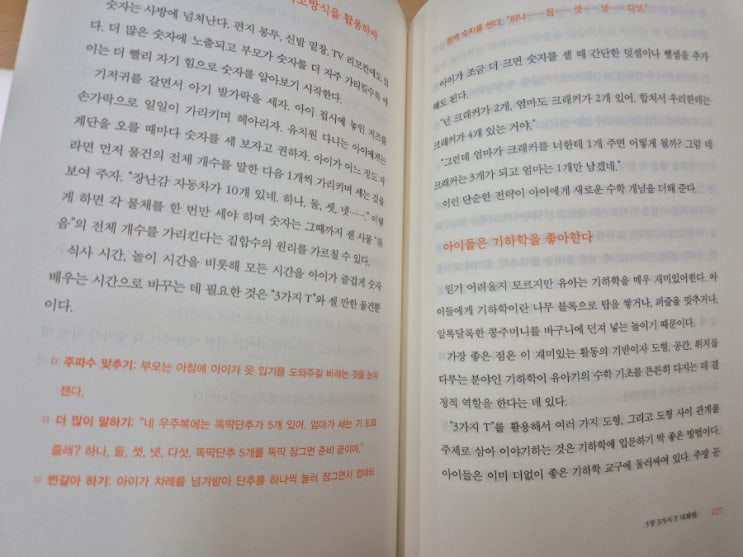 방식을 활용하자
숫자는 사방에 넘쳐난다. 편지 봉투, 신발 밑창, TV 리모컨에도 있
다. 더 많은 숫자에 노출되고 부모가 숫자를 더 자주 가리킬수록 아
이는 더 빨리 자기 힘으로 숫자를 알아보기 시작한다.
기저귀를 갈면서 아기 발가락을 세자. 아이 접시에 놓인 치즈를
손가락으로 일일이 가리키며 헤아리자. 유치원 다니는 아이에게는
계단을 오를 때마다 숫자를 세 보자고 권하자. 아이가 어느 정도 자
라면 먼저 물건의 전체 개수를 말한 다음 1개씩 가리키며 세는 것을
보여 주자. "장난감 자동차가 10개 있네. 하나, 둘, 셋, 넷……." 이렇
게 하면 각 물체를 한 번만 세야 하며 숫자는 그때까지 센 사물 "묶
음"의 전체 개수를 가리킨다는 집합수의 원리를 가르칠 수 있다.
식사 시간, 놀이 시간을 비롯해 모든 시간을 아이가 즐겁게 숫자
배우는 시간으로 바꾸는 데 필요한 것은 "3가지 T"와 셀 만한 물건뿐
이다.
주파수 맞추기: 부모는 아침에 아이가 옷 입기를 도와주길 바라는 것을 눈치
챈다.
더 많이 말하기: "네 우주복에는 똑딱단추가 5개 있어. 엄마가 세는 거 도와
줄래? 하나, 둘, 셋, 넷, 다섯. 똑딱단추 5개를 똑딱 잠그면 준비 끝이어."
번갈아 하기: 아이가 차례를 넘겨받아 단추를 하나씩 눌러 잠그면서 엄마와
함께 숫자를 센다. "하나…… 둘…… 셋…… 넷…… 다섯."
아이가 조금 더 크면 숫자를 셀 때 간단한 덧셈이나 뺄셈을 추가
해도 된다.
"넌 크래커가 2개, 엄마도 크래커가 2개 있어. 합쳐서 우리한테는
크래커가 4개 있는 거야."
"그런데 엄마가 크래커를 너한테 1개 주면 어떻게 될까? 그럼 네
크래커는 3개가 되고 엄마는 1개만 남겠네."
이런 단순한 전략이 아이에게 새로운 수학 개념을 더해 준다.
아이들은 기하학을 좋아한다
믿기 어려울지 모르지만 유아는 기하학을 매우 재미있어한다. 아
이들에게 기하학이란 나무 블록으로 탑을 쌓거나, 퍼즐을 맞추거나,
알록달록한 콩주머니를 바구니에 던져 넣는 놀이기 때문이다.
가장 좋은 점은 이 재미있는 활동의 기반이자 도형, 공간, 위치를
다루는 분야인 기하학이 유아기의 수학 기초를 튼튼히 다지는 데 결
정적 역할을 한다는 데 있다.
"3가지 T"를 활용해서 여러 가지 도형, 그리고 도형 사이 관계를
주제로 삼아 이야기하는 것은 기하학에 입문하기 딱 좋은 방법이다.
아이들은 이미 더없이 좋은 기하학 교구에 둘러싸여 있다. 주방 문
5장 3가지 T 대화법 227